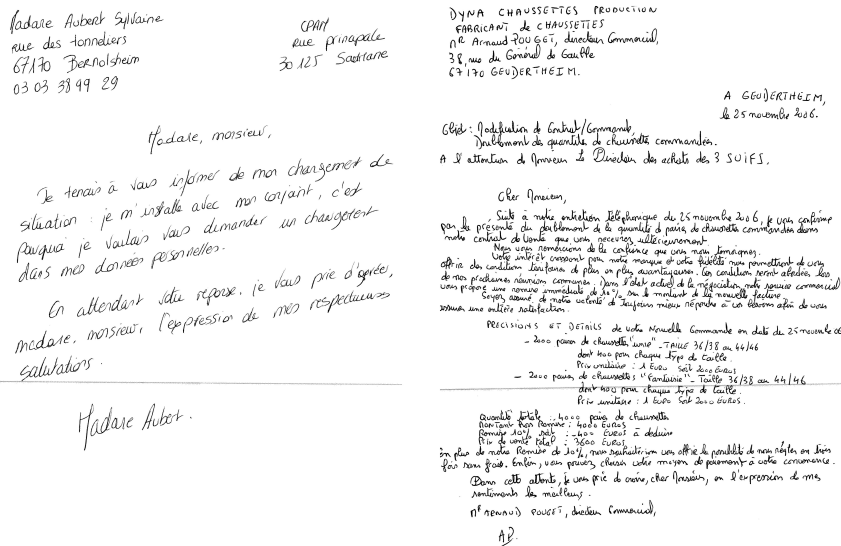 Madame Aubert Sylvaine
rue des tonneliers
67170 Bernolsheim
03 03 38 99 29
CPAM
rue principale
30125 Saumane
Madame, monsieur,
Je tenais à vous informer de mon changement de
situation : je m'installe avec mon conjoint, c'est
pourquoi je voulais vous demander un changement
dans mes données personnelles.
En attendant votre réponse, je vous prie d'agréer,
madame, monsieur, l'expression de mes respectueuses
salutations.
Madame Aubert.
DYNA CHAUSSETTES PRODUCTION
FABRICANT de CHAUSSETTES
Mr Arnaud POUGET, directeur Commercial,
38, rue du Général de Gaulle
67170 GEUDERTHEIM.
A GEUDERTHEIM,
le 25 novembre 2006.
Objet : Modification de Contrat/Commande,
Doublement des quantités de chaussettes commandées.
A l'attention de Monsieur le Directeur des achats des 3 SUIFS.
Cher Monsieur,
Suite à notre entretien téléphonique du 25 novembre 2006, je vous confirme
par la présente du doublement de la quantité de paires de chaussettes commandées dans
notre contrat de vente que vous recevrez ultérieurement.
Nous vous remercions de la confiance que vous nous témoignez.
Votre intérêt croissant pour notre marque et votre fidélité nous permettront de vous
offrir des conditions tarifaires de plus en plus avantageuses. Ces conditions seront abordées lors
de nos prochaines réunions communes. Dans l'état actuel de la négociation notre service commercial
vous propose une remise immédiate de 10% sur le montant de la nouvelle facture.
Soyez assuré, de notre volonté de toujours mieux répondre à vos besoins afin de vous
assurer une entière satisfaction.
PRECISIONS ET DETAILS de votre Nouvelle Commande en date du 25 novembre 06
- 2000 paires de chaussettes "unie" - TAILLE 36/38 au 44/46
dont 400 pour chaque type de taille.
Prix unitaire : 1 EURO Soit 2000 EUROS
- 2000 paires de chaussettes "Fantaisie" - Taille 36/38 au 44/46
dont 400 pour chaque type de taille.
Prix unitaire : 1 EURO Soit 2000 EUROS.
Quantité totale : 4000 paires de chaussettes
Montant hors Remise : 4000 EUROS
Remise 10% soit : -400 EUROS à déduire
Prix de vente total : 3600 EUROS
En plus de notre Remise de 10%, nous souhaiterions vous offrir la possibilité de nous régler en trois
fois sans frais. Enfin, vous pouvez choisir votre moyen de paiement à votre convenance.
Dans cette attente, je vous prie de croire, cher Monsieur, en l'expression de mes
sentiments les meilleurs.
Mr ARNAUD POUGET, directeur Commercial,
AP.